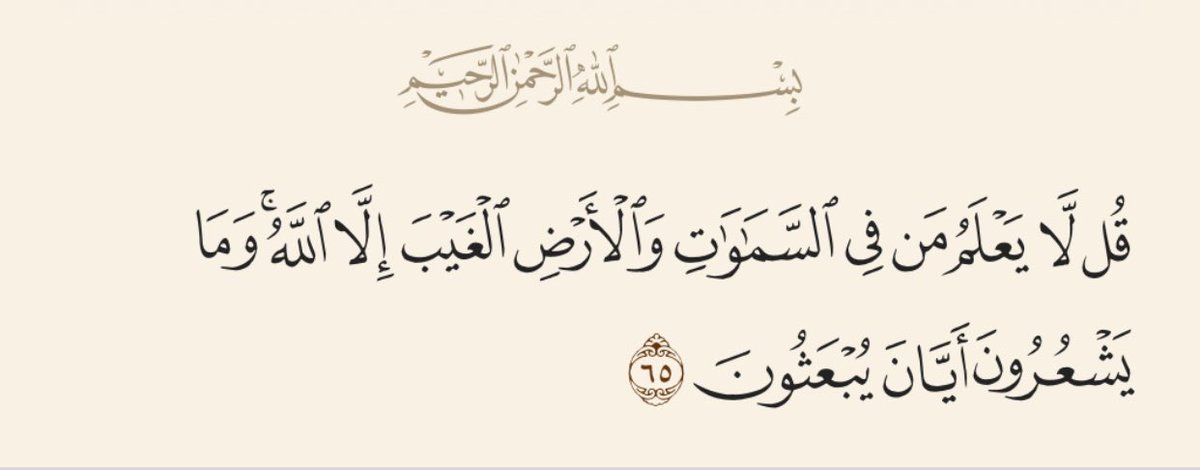 بِسْمِ ٱللَّهِ ٱلرَّحْمَٰنِ ٱلرَّحِيمِ
قُل لَّا يَعْلَمُ مَن فِى ٱلسَّمَٰوَٰتِ وَٱلْأَرْضِ ٱلْغَيْبَ إِلَّا ٱللَّهُ ۚ وَمَا
يَشْعُرُونَ أَيَّانَ يُبْعَثُونَ ٦٥